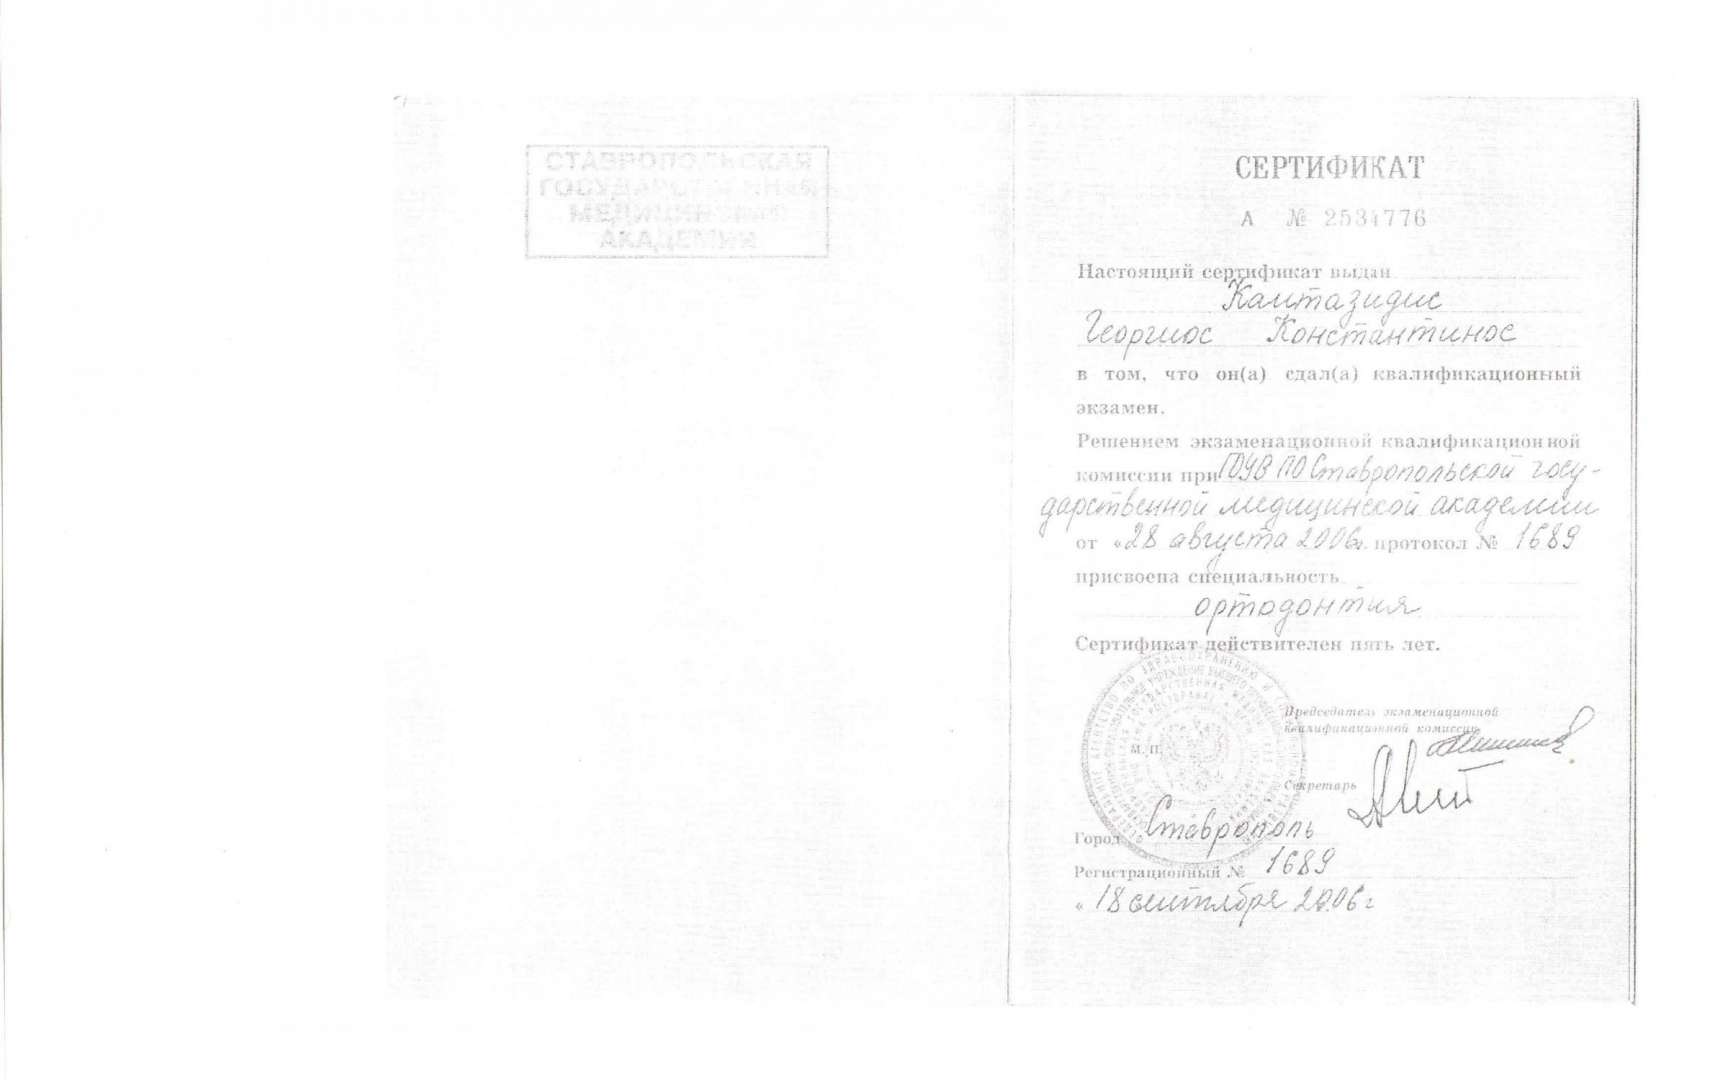 СТАВРОПОЛЬСКАЯ
ГОСУДАРСТВЕННАЯ
МЕДИЦИНСКАЯ
АКАДЕМИЯ
СЕРТИФИКАТ
А № 2534776
Настоящий сертификат выдан
Каитазидис
Георгиос Константинос
в том, что он(а) сдал(а) квалификационный
экзамен.
Решением экзаменационной квалификационной
комиссии при ГОУВПО Ставропольской госу-
дарственной медицинской академии
от «28 августа 2006г. протокол № 1689
присвоена специальность
ортодонтия
Сертификат действителен пять лет.
Председатель экзаменационной
квалификационной комиссии
М. П.
Секретарь
Город Ставрополь
Регистрационный № 1689
« 18 сентября 2006 г